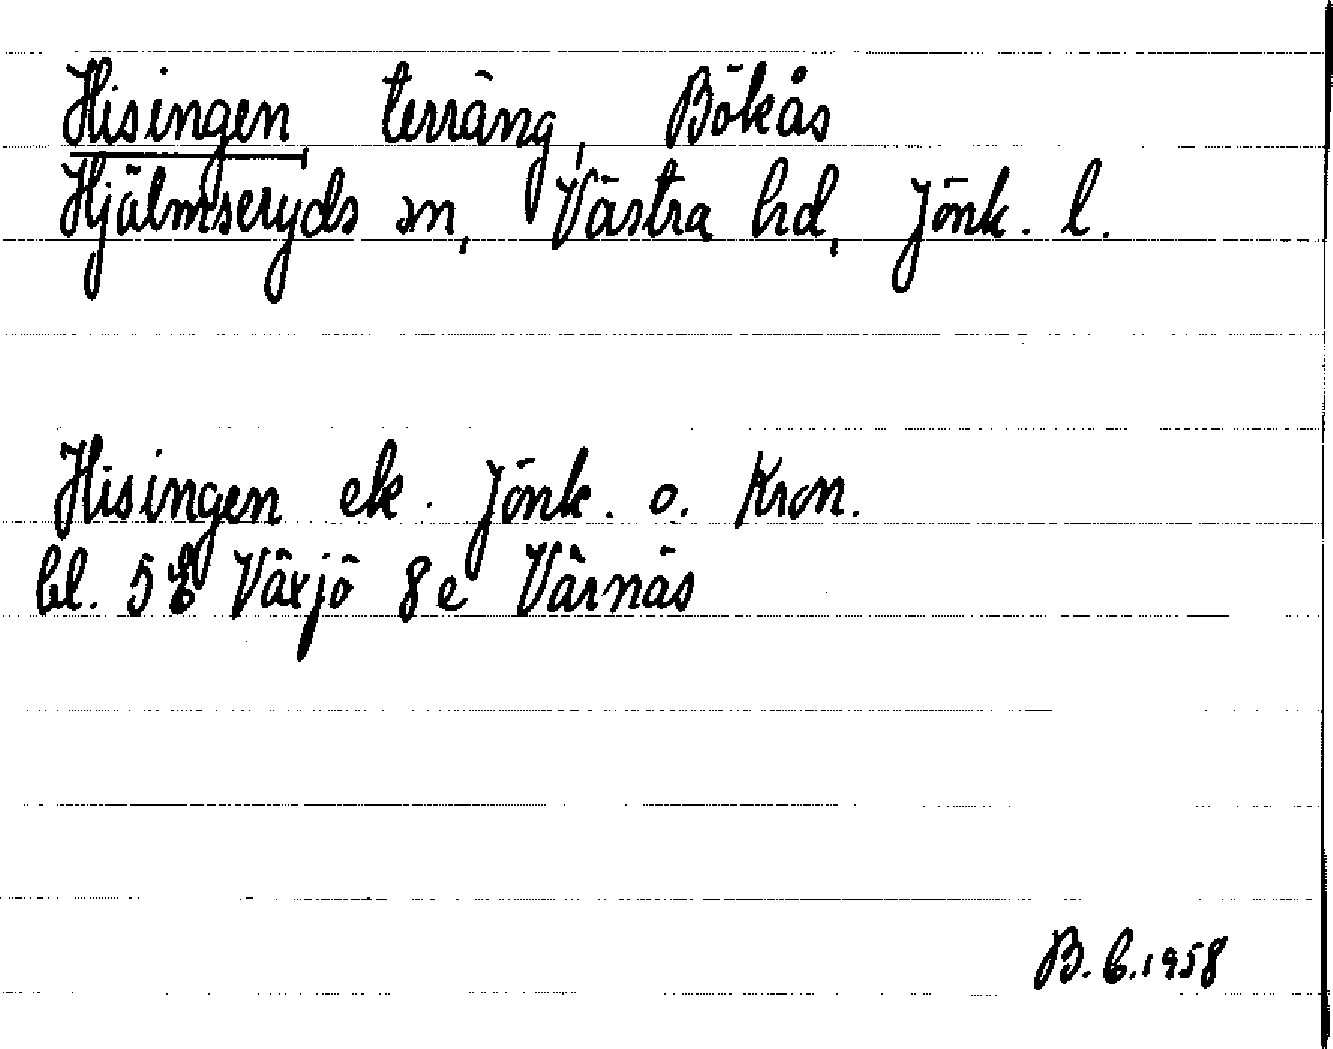 Hisingen, terräng, Bökås
Hjälmseryds sn, Västra hd, Jönk. l.
Hisingen ek. Jönk. o. Kron.
bl. 5 E Växjö 8e Värnäs
B. E. 1958